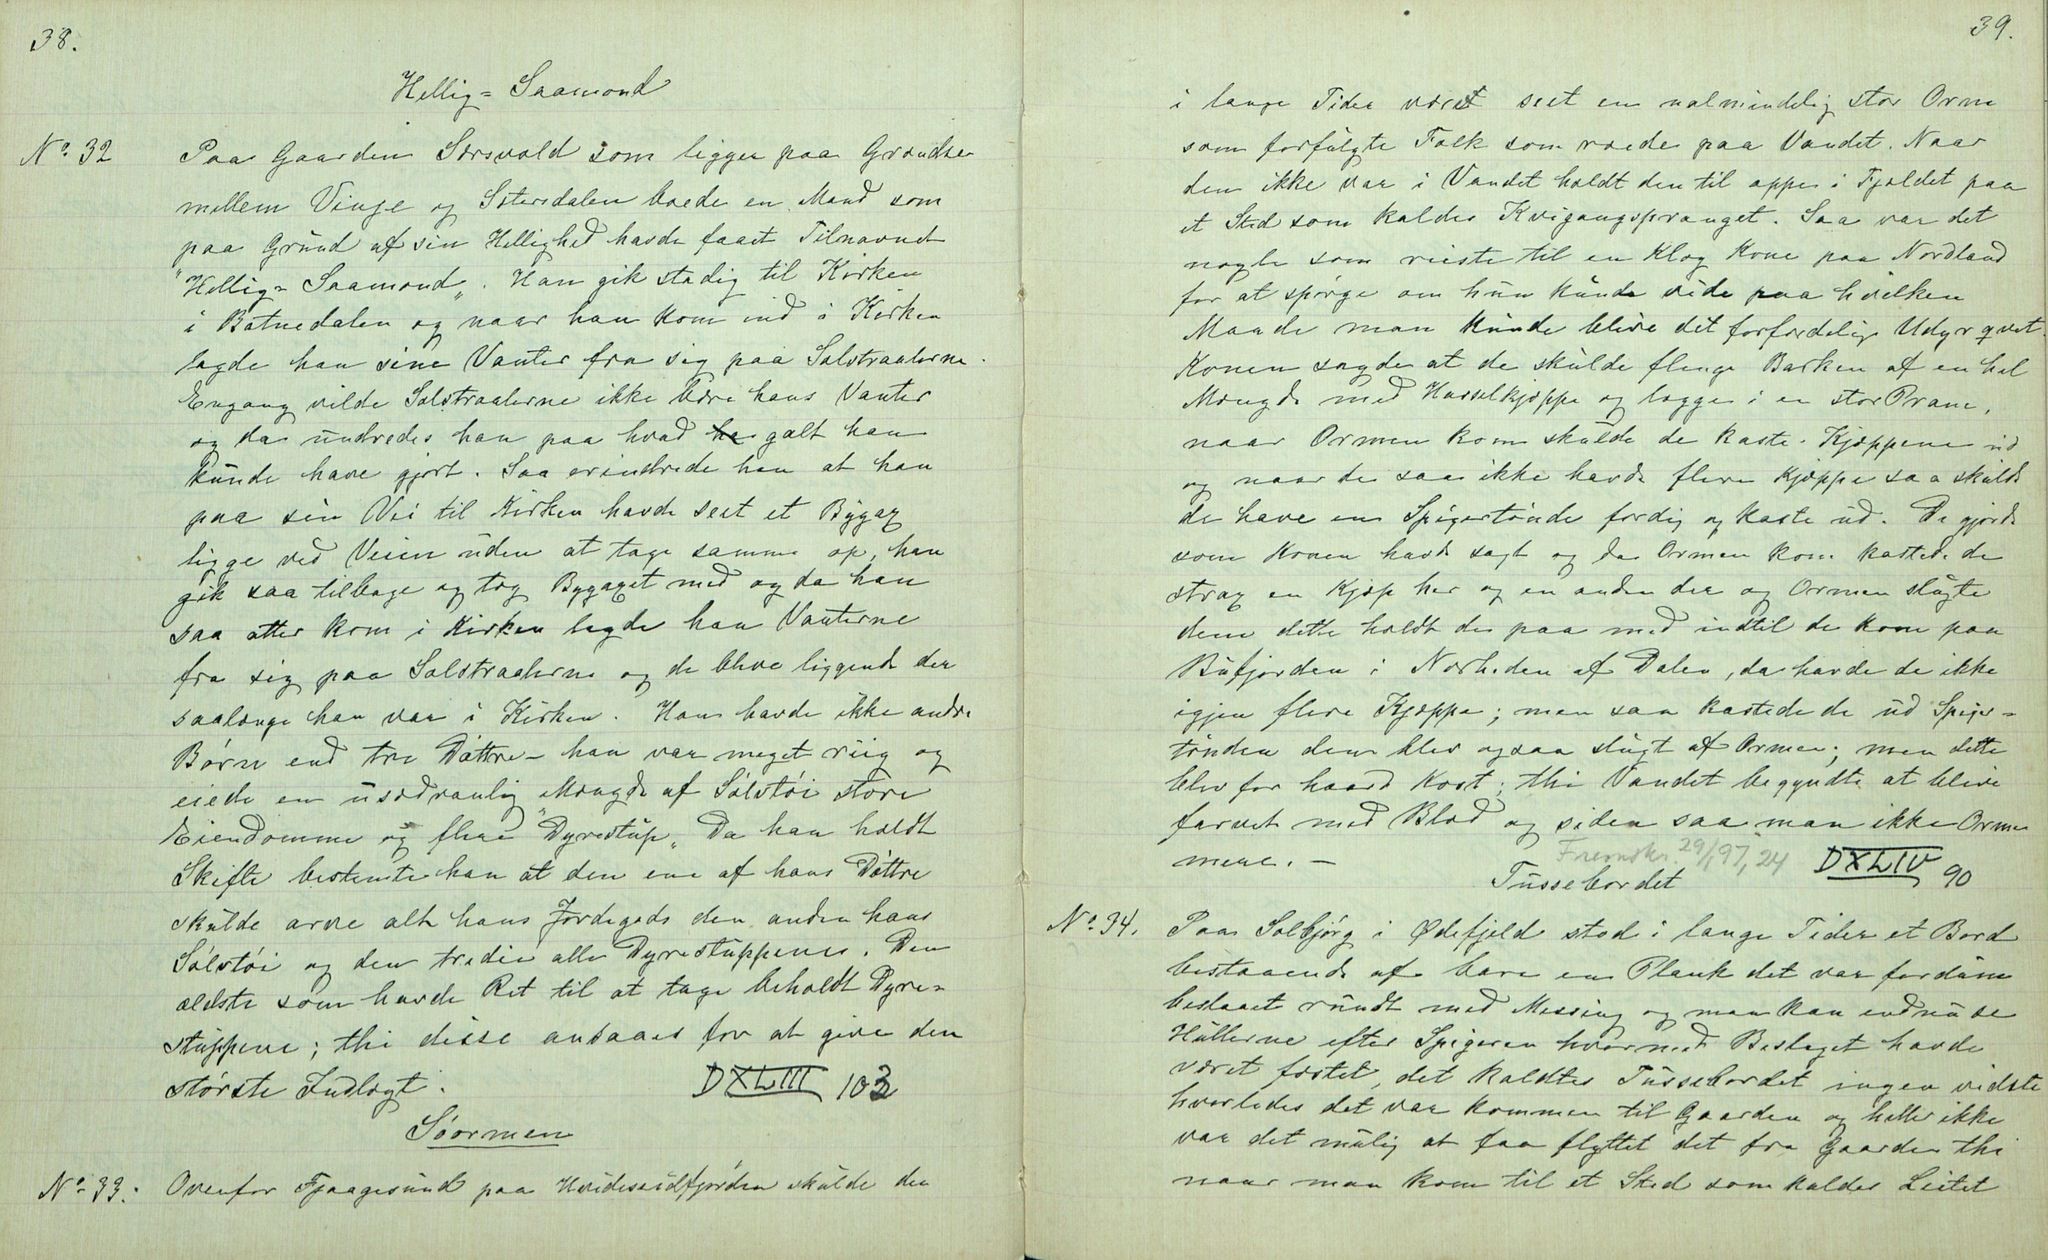 38.
Hellig= Saamond
No 32 Paa Gaarden Sørsvold som ligger paa Grændsen
mellem Vinje og Setersdalen boede en Mand som
paa Grund af sin Hellighed havde faaet Tilnavnet
"Hellig= Saamond„. Han gik stadig til Kirken
i Botnedalen og naar han kom ind i Kirken
lagde han sine Vanter fra sig paa Solstraalerne.
Engang vilde Solstraalerne ikke bære hans Vanter
og da undredes han paa hvad galt han
kunde have gjort. Saa erindrede han at han
paa sin Vei til Kirken havde seet et Bygax
ligge ved Veien uden at tage samme op, han
gik saa tilbage og tog Bygaxet med og da han
saa atter kom i Kirken lagde han Vanterne
fra sig paa Solstraalerne og de bleve liggende der
saalænge han var i Kirken. Han havde ikke andre
Børn end tre Døttre – han var meget riig og
eiede en usædvanlig Mængde af Sølvtøi store
Eiendomme og flere "Dyrestup„ Da han holdt
Skifte bestemte han at den ene af hans Døttre
skulde arve alt hans Jordegods den anden hans
Sølvtøi og den tredie alle Dyrestuppene. Den
ældste som havde Ret til at tage beholdt Dyre=
stuppene; thi disse ansaaes for at give den
største Indtægt. DXLIII 103
Søormen
No 33. Ovenfor Fjaagesund paa Hvideseidfjorden skulde der
39.
i lange Tider været seet en ualmindelig stor Orm
som forfulgte Folk som roede paa Vandet. Naar
den ikke var i Vandet holdt den til oppe i Fjeldet paa
et Sted som kaldes Kvigangspranget. Saa var det
nogle som reiste til en Klog Kone paa Nordland
for at spørge om hun kunde vide paa hvilken
Maade man kunde blive det forfærdelige Udyr qvit.
Konen sagde at de skulde flenge Barken af en hel
Mængde med Hasselkjæppe og lægge i en stor Pram,
naar Ormen kom skulde de kaste Kjæppene ud
og naar de saa ikke havde flere Kjæppe saa skulde
de have en Spigertønde færdig og kaste ud. De gjorde
som Konen havde sagt og da Ormen kom kastede de
strax en Kjæp her og en anden der og Ormen slugte
dem dette holdt de paa med indtil de kom paa
Bufjorden i Nærheden af Dalen, da havde de ikke
igjen flere Kjæppe; men saa kastede de ud Spiger=
tønden den blev ogsaa slugt af Ormen; men dette
blev for haard Kost; thi Vandet begyndte at blive
farvet med Blod og siden saa man ikke Ormen
mere. – 29/97, 24 DXLIV 90
Tussebordet
No 34. Paa Solbjørg i Ødefjeld stod i lange Tider et Bord
bestaaende af bare en Plank det var fordum
beslaaet rundt med Messing og man kan endnu se
Hullerne efter Spigeren hvormed Beslaget havde
været fæstet, det kaldtes Tussebordet ingen vidste
hvorledes det var kommen til Gaarden og heller ikke
var det mulig at faa flyttet det fra Gaarden thi
naar man kom til et Sted som kaldes Leitet